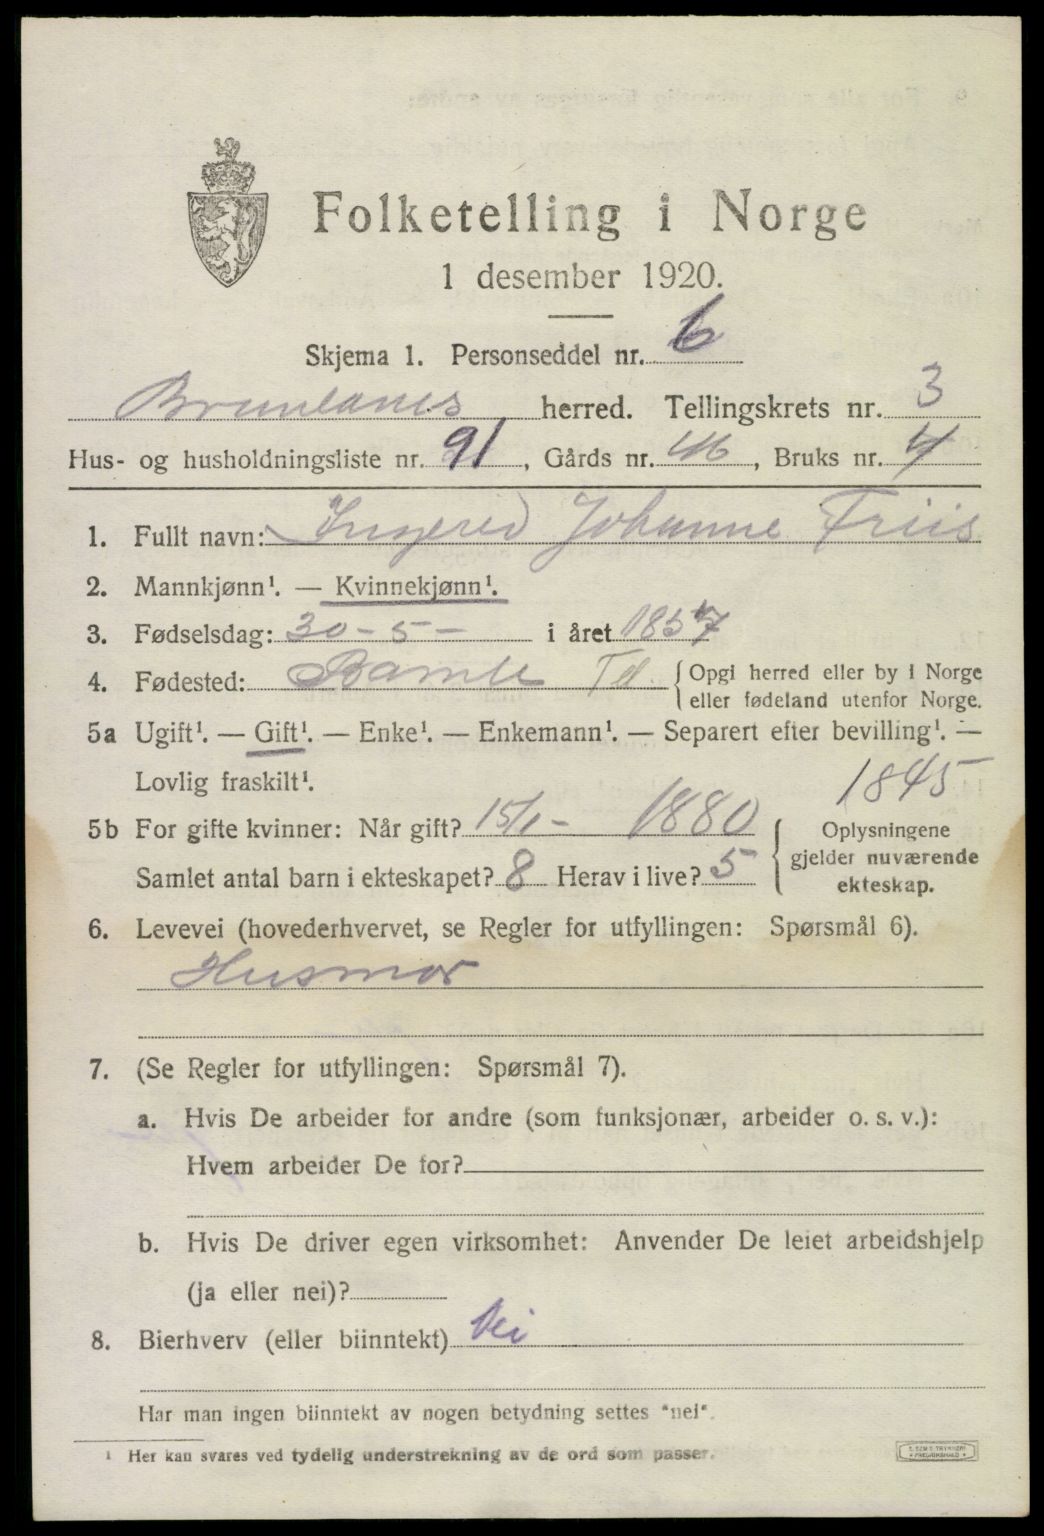 Folketelling i Norge
1 desember 1920.
Skjema 1. Personseddel nr. 6
Brunlanes herred. Tellingskrets nr. 3
Hus- og husholdningsliste nr. 91, Gårds nr. 46, Bruks nr. 4
1. Fullt navn: Ingered Johanne Friis
2. Mannkjønn¹. — Kvinnekjønn¹.
3. Fødselsdag: 30 - 5 - i året 1857
4. Fødested: Bamle Tel. { Opgi herred eller by i Norge
eller fødeland utenfor Norge.
5a Ugift¹. — Gift¹. — Enke¹. — Enkemann¹. — Separert efter bevilling¹. —
Lovlig fraskilt¹. 1845
5b For gifte kvinner: Når gift? 15/1 - 1880 { Oplysningene
gjelder nuværende
Samlet antal barn i ekteskapet? 8 Herav i live? 5 ekteskap.
6. Levevei (hovederhvervet, se Regler for utfyllingen: Spørsmål 6).
Husmor
7. (Se Regler for utfyllingen: Spørsmål 7).
a. Hvis De arbeider for andre (som funksjonær, arbeider o. s. v.):
Hvem arbeider De for?
b. Hvis De driver egen virksomhet: Anvender De leiet arbeidshjelp
(ja eller nei)?
8. Bierhverv (eller biinntekt) Nei
Har man ingen biinntekt av nogen betydning settes "nei".
¹ Her kan svares ved tydelig understrekning av de ord som passer.